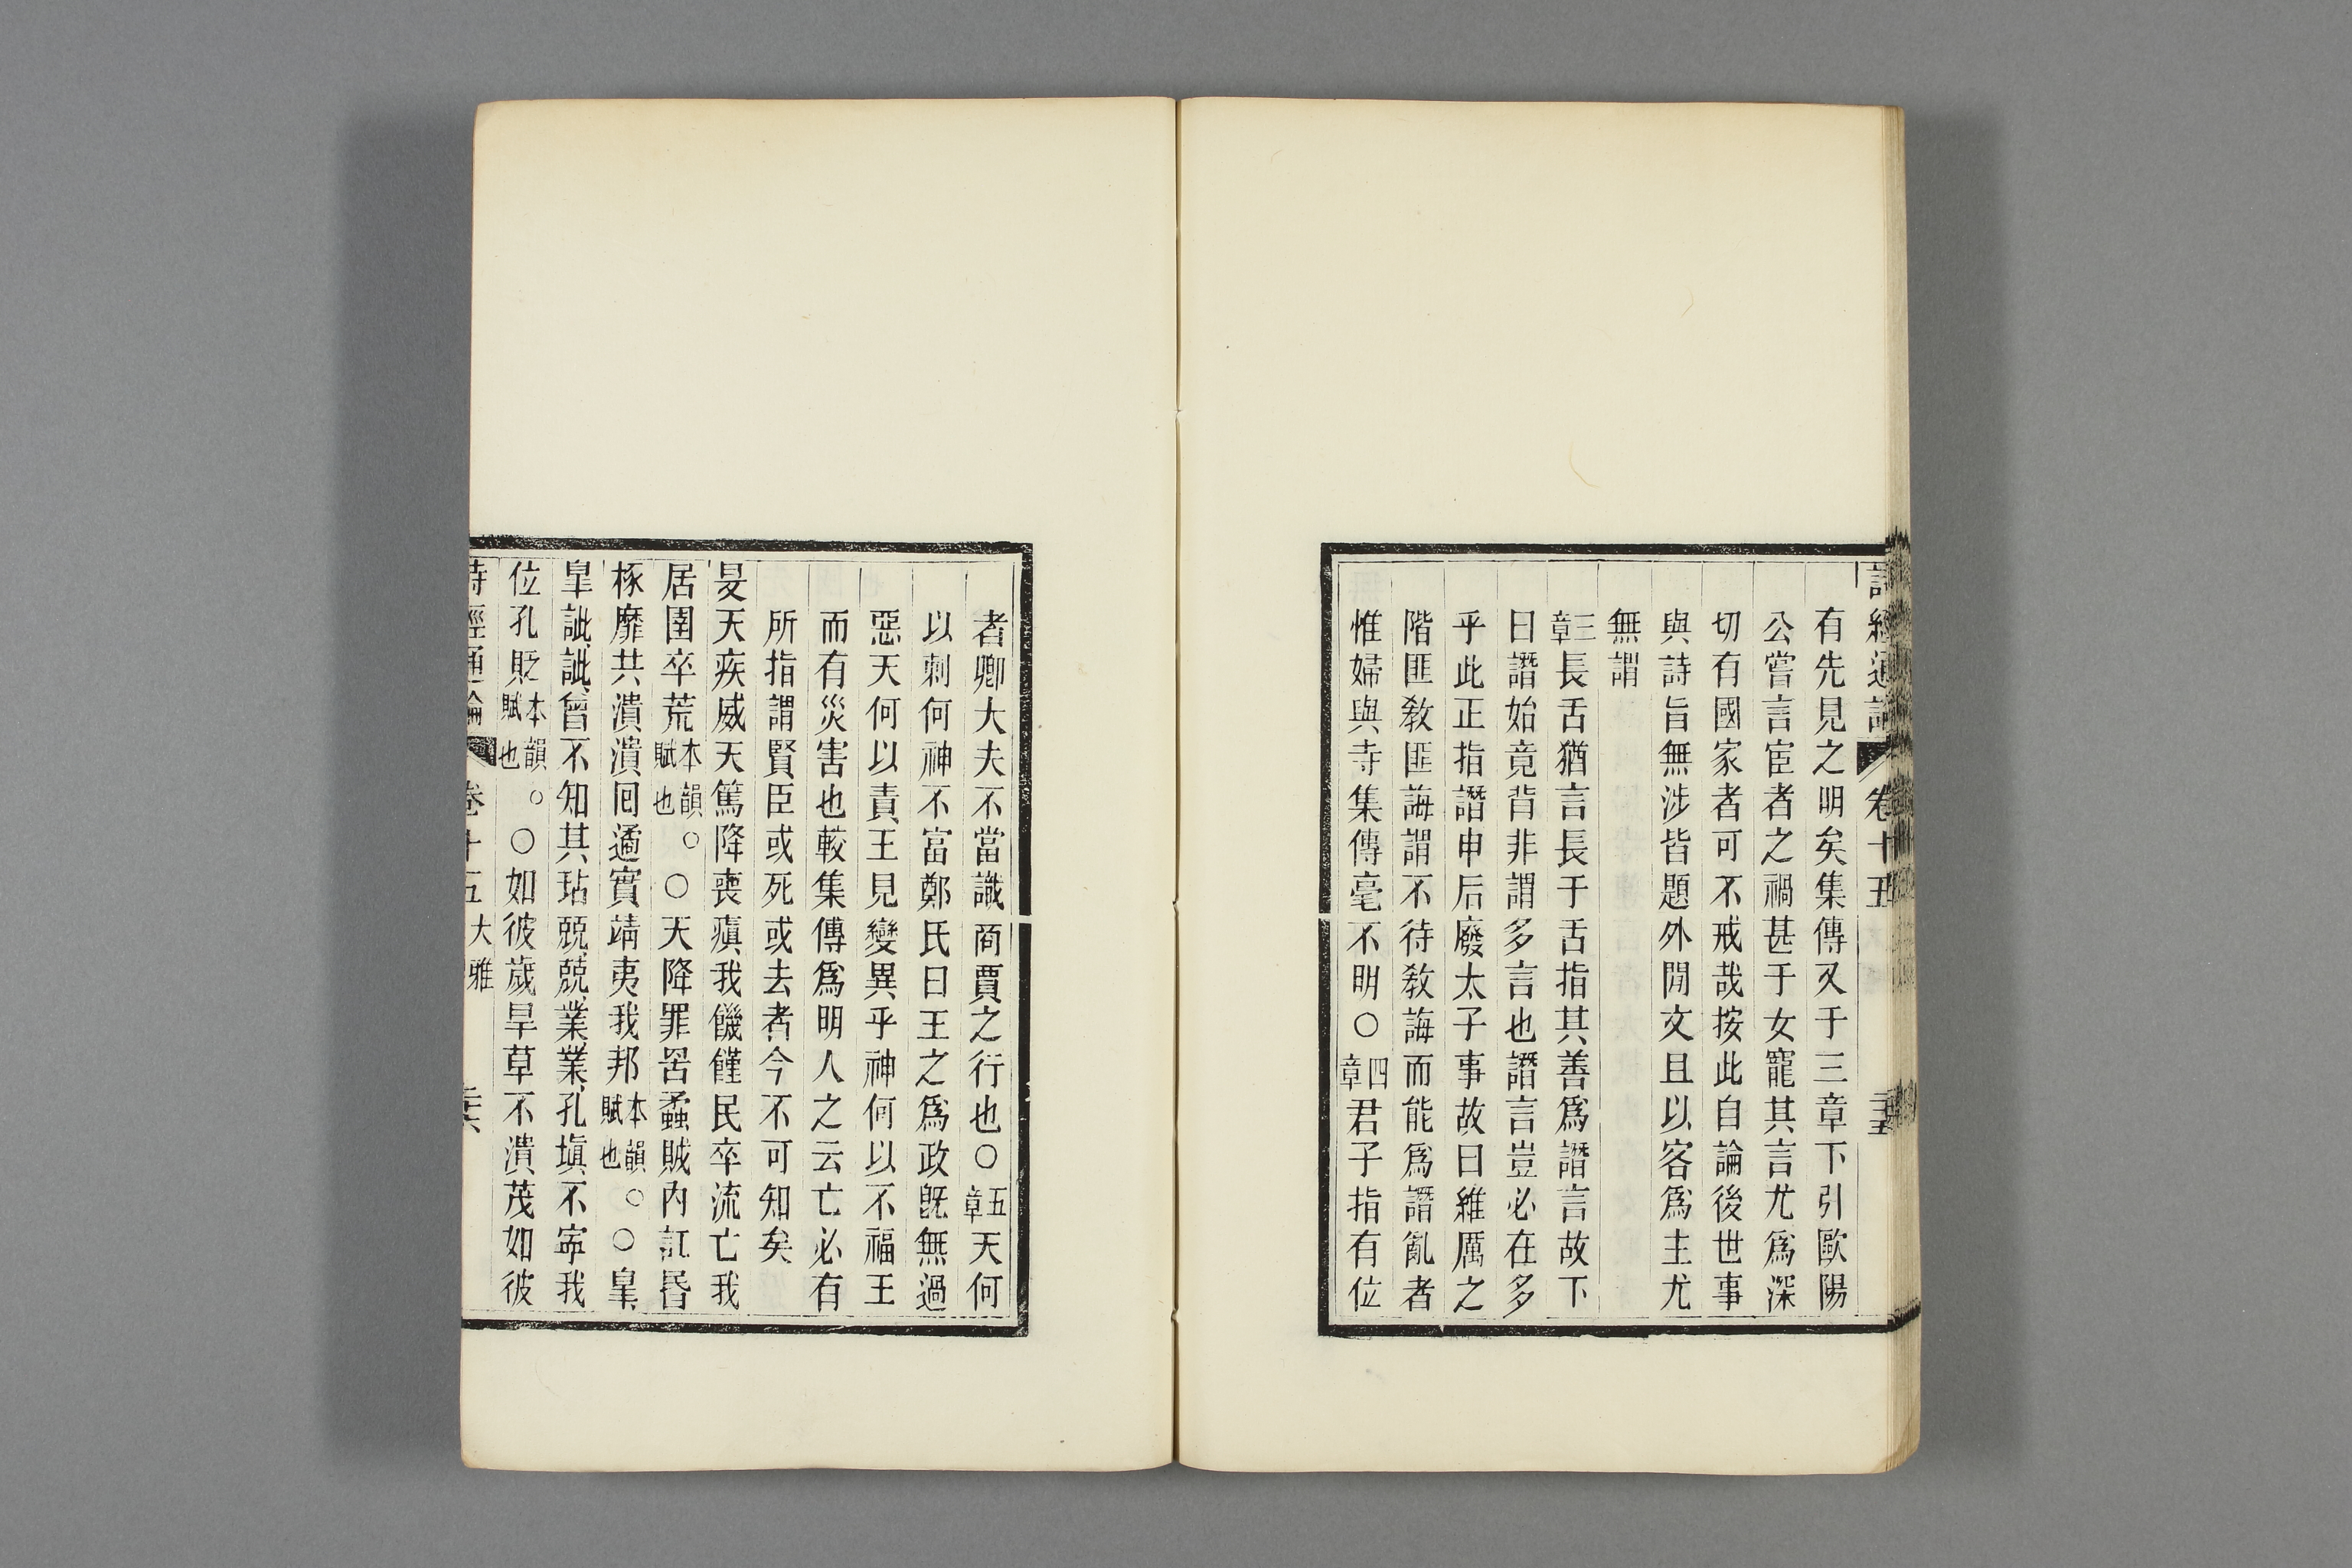 詩經通論 卷十五 二十五
有先見之明矣集傳又于三章下引歐陽
公嘗言宦者之禍甚于女寵其言尤爲深
切有國家者可不戒哉按此自論後世事
與詩旨無涉皆題外閒文且以客爲主尤
無謂
三章長舌猶言長于舌指其善爲譖言故下
曰譖始竟背非謂多言也譖言豈必在多
乎此正指譖申后廢太子事故曰維厲之
階匪教匪誨謂不待教誨而能爲譖亂者
惟婦與寺集傳毫不明〇四章君子指有位
者卿大夫不當識商賈之行也〇五章天何
以刺何神不富鄭氏曰王之爲政旣無過
惡天何以責王見變異乎神何以不福王
而有災害也較集傳爲明人之云亡必有
所指謂賢臣或死或去者今不可知矣
旻天疾威天篤降喪瘨我饑饉民卒流亡我
居圉卒荒本韻賦也。〇天降罪罟蟊賊內訌昬
椓靡共潰潰回遹實靖夷我邦本韻賦也。〇臯
臯訿訿曾不知其玷兢兢業業孔塡不寧我
位孔貶本韻賦也。〇如彼歲旱草不潰茂如彼
詩經通論 卷十五 大雅 二十六